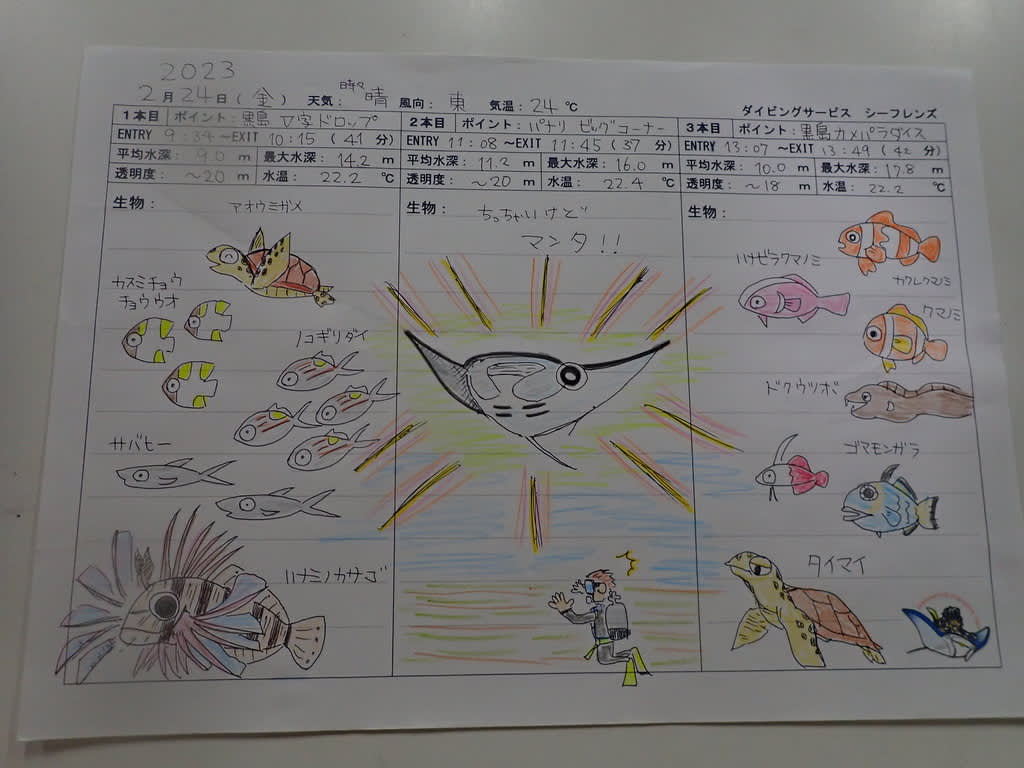 2023
2月24日(金) 天気: 時々晴 風向: 東 気温: 24 ℃
ダイビングサービス シーフレンズ
1本目 ポイント: 黒島 V字ドロップ
ENTRY 9:34 ～EXIT 10:15 (41 分)
平均水深: 9.0 m 最大水深: 14.2 m
透明度: ～20 m 水温: 22.2 ℃
生物: アオウミガメ
カスミチョウ
チョウウオ
ノコギリダイ
サバヒー
ハナミノカサゴ
2本目 ポイント: パナリ ビッグコーナー
ENTRY 11:08 ～EXIT 11:45 (37 分)
平均水深: 11.2 m 最大水深: 16.0 m
透明度: ～20 m 水温: 22.4 ℃
生物: ちっちゃいけど
マンタ!!
3本目 ポイント: 黒島カメパラダイス
ENTRY 13:07 ～EXIT 13:49 (42 分)
平均水深: 10.0 m 最大水深: 17.8 m
透明度: ～18 m 水温: 22.2 ℃
生物:
ハナビラクマノミ
カクレクマノミ
クマノミ
ドクウツボ
ゴマモンガラ
タイマイ